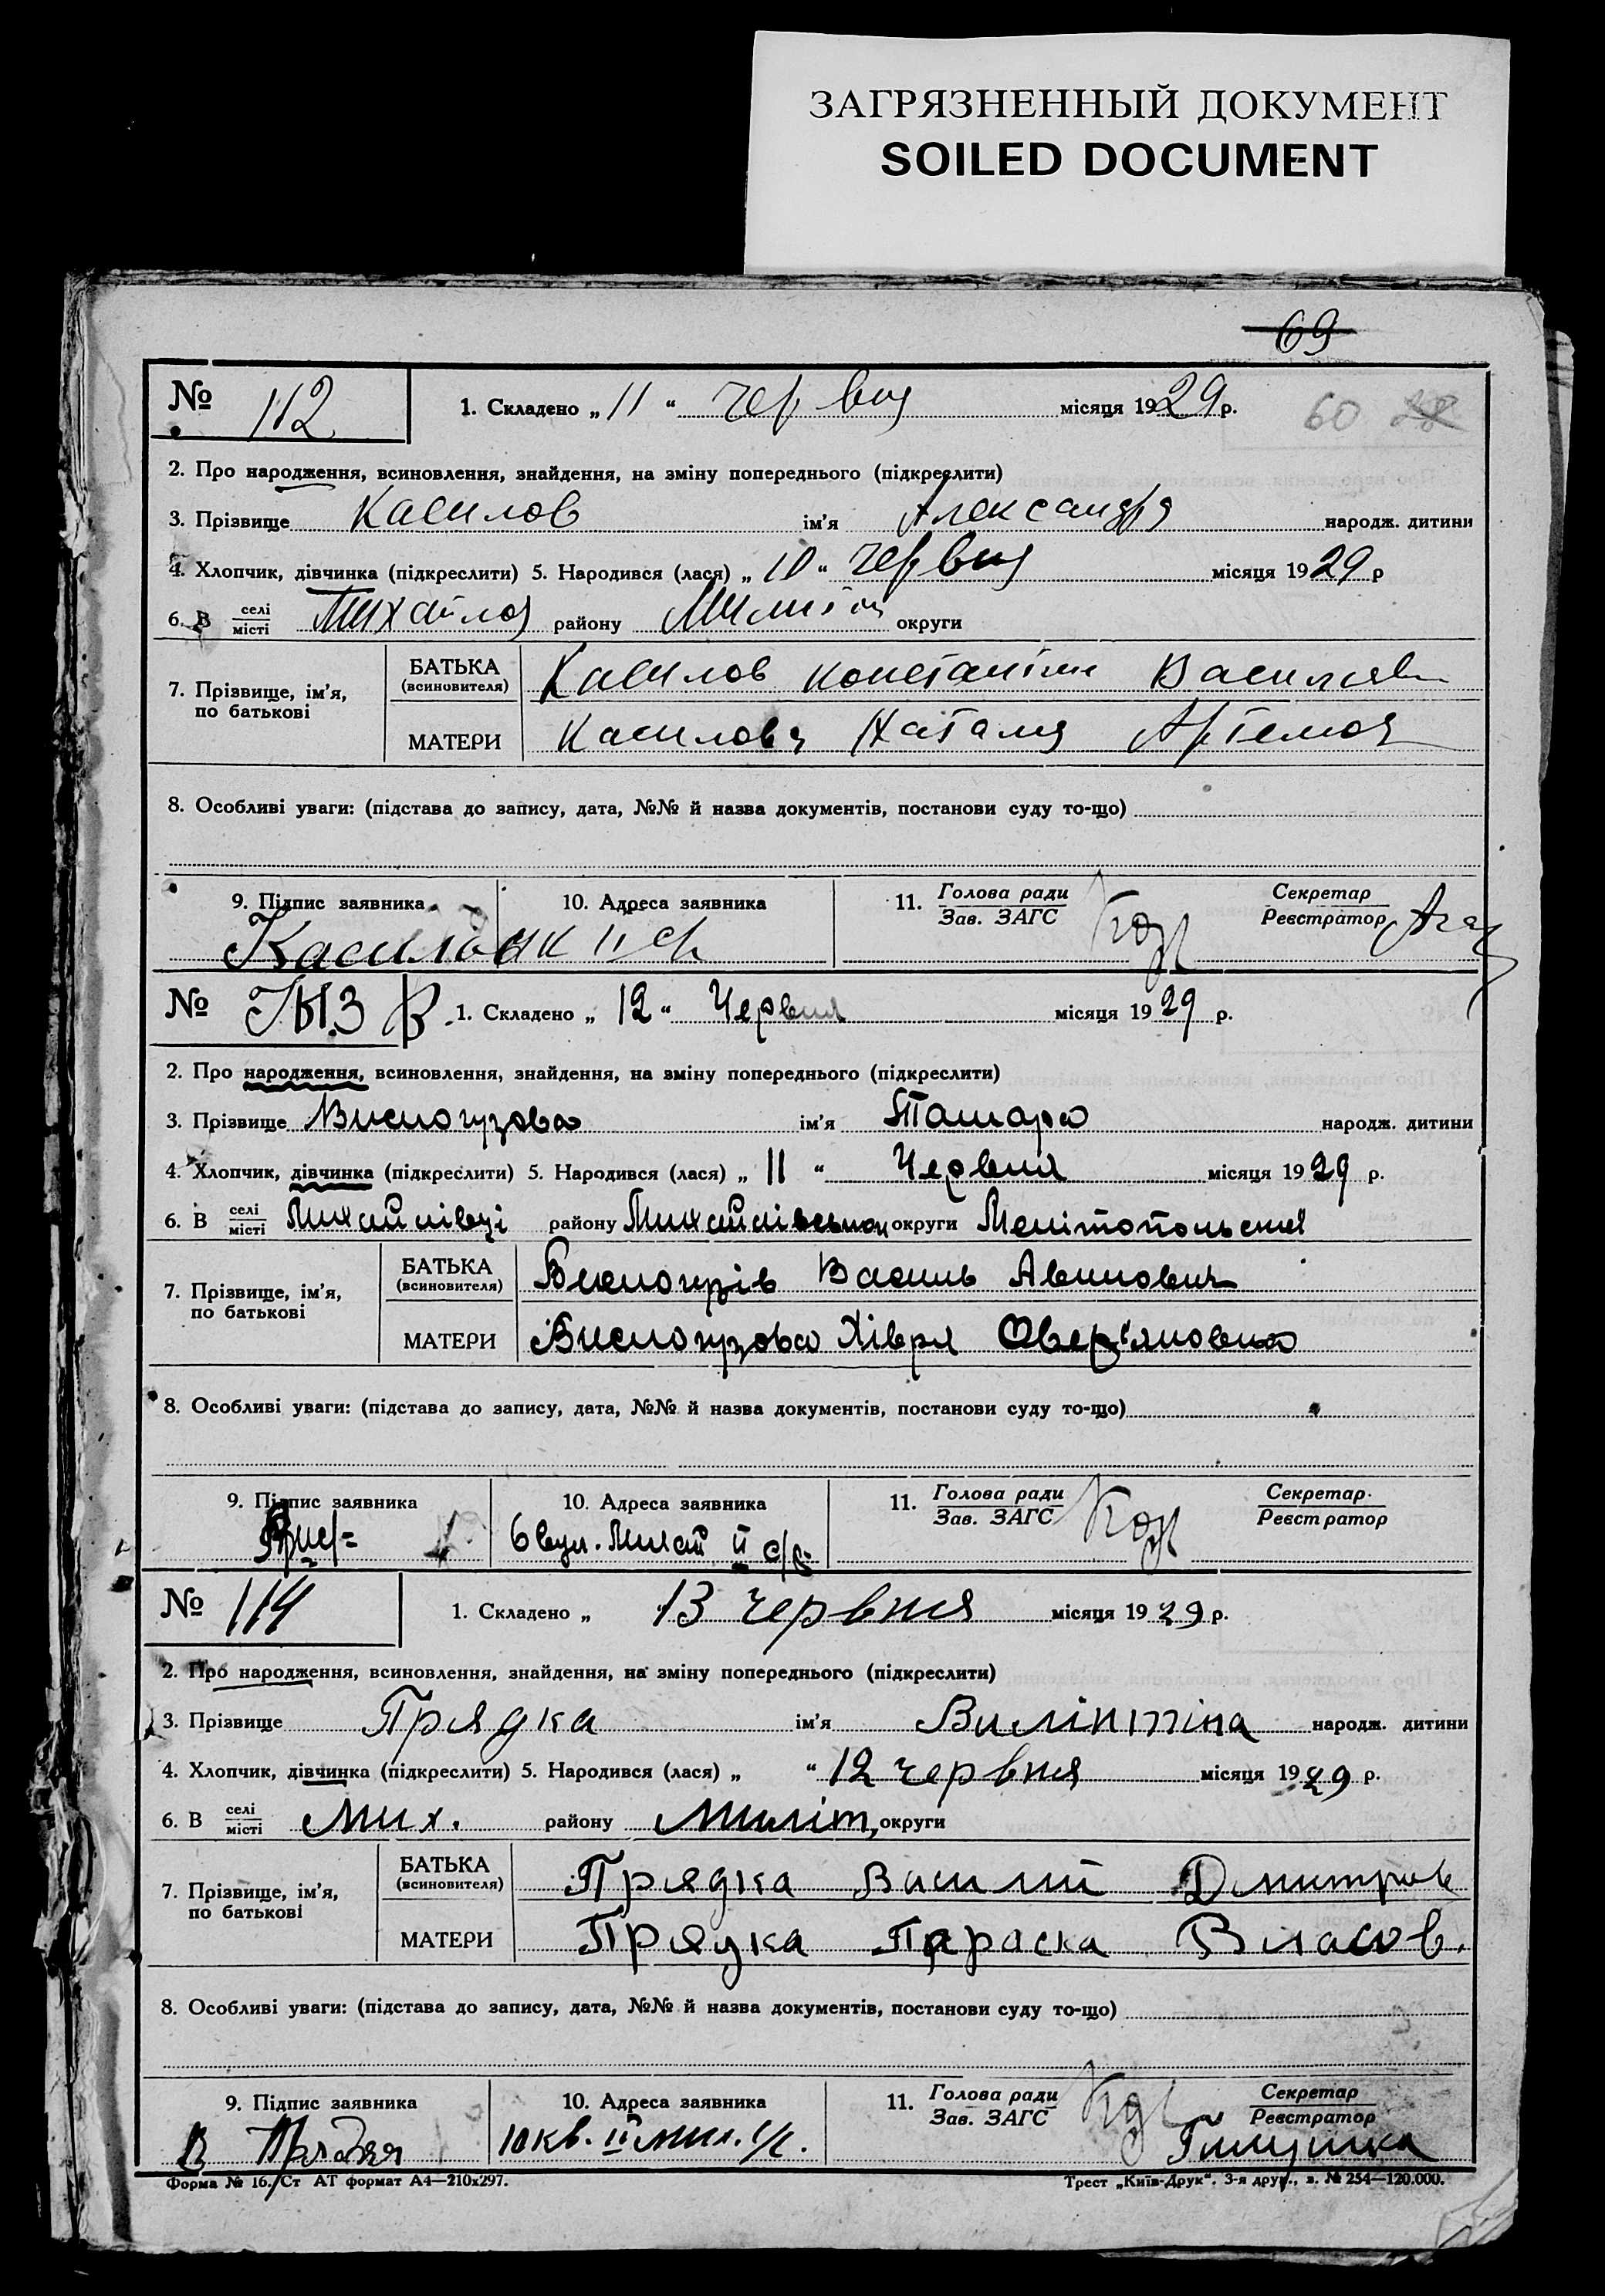 ЗАГРЯЗНЕННЫЙ ДОКУМЕНТ
SOILED DOCUMENT
69
№ 112 1. Складено „ 11 “ червня місяця 1929 р. 60
2. Про народження, всиновлення, знайдення, на зміну попереднього (підкреслити)
3. Прізвище Касилов ім'я Александра народж. дитини
4. Хлопчик, дівчинка (підкреслити) 5. Народився (лася) „ 10 “ червня місяця 1929 р
6. В селі/місті Михайлов району округи
7. Прізвище, ім'я, по батькові БАТЬКА (всиновителя) Касилов Константин Василиев
МАТЕРИ Касилова Наталия Артемов
8. Особливі уваги: (підстава до запису, дата, №№ й назва документів, постанови суду то-що)
9. Підпис заявника 10. Адреса заявника 11. Голова ради / Зав. ЗАГС Секретар / Реєстратор
Касилов
№ 113 1. Складено „ 12 “ Червня місяця 1929 р.
2. Про народження, всиновлення, знайдення, на зміну попереднього (підкреслити)
3. Прізвище Вислогузова ім'я Тамара народж. дитини
4. Хлопчик, дівчинка (підкреслити) 5. Народився (лася) „ 11 “ Червня місяця 1929 р.
6. В селі/місті Михайлівці району Михайлівськой округи Мелітопольскей
7. Прізвище, ім'я, по батькові БАТЬКА (всиновителя) Василь
МАТЕРИ Вислогузова Хівря Овер'яновна
8. Особливі уваги: (підстава до запису, дата, №№ й назва документів, постанови суду то-що)
9. Підпис заявника 10. Адреса заявника 11. Голова ради / Зав. ЗАГС Секретар / Реєстратор
6 вул. Михай II с/р
№ 114 1. Складено „ 13 червня місяця 1929 р.
2. Про народження, всиновлення, знайдення, на зміну попереднього (підкреслити)
3. Прізвище Прядка ім'я Вилінтіна народж. дитини
4. Хлопчик, дівчинка (підкреслити) 5. Народився (лася) „ “ 12 червня місяця 1929 р.
6. В селі/місті Мих. району Миліт, округи
7. Прізвище, ім'я, по батькові БАТЬКА (всиновителя) Прядка Василий Дмитрив
МАТЕРИ Прядка Параска Власов.
8. Особливі уваги: (підстава до запису, дата, №№ й назва документів, постанови суду то-що)
9. Підпис заявника 10. Адреса заявника 11. Голова ради / Зав. ЗАГС Секретар / Реєстратор
В Прядка 10 кв. II мих. с/с.
Форма № 16. Ст АТ формат А4—210х297. Трест „Київ-Друк“. 3-я друк., з. № 254—120.000.